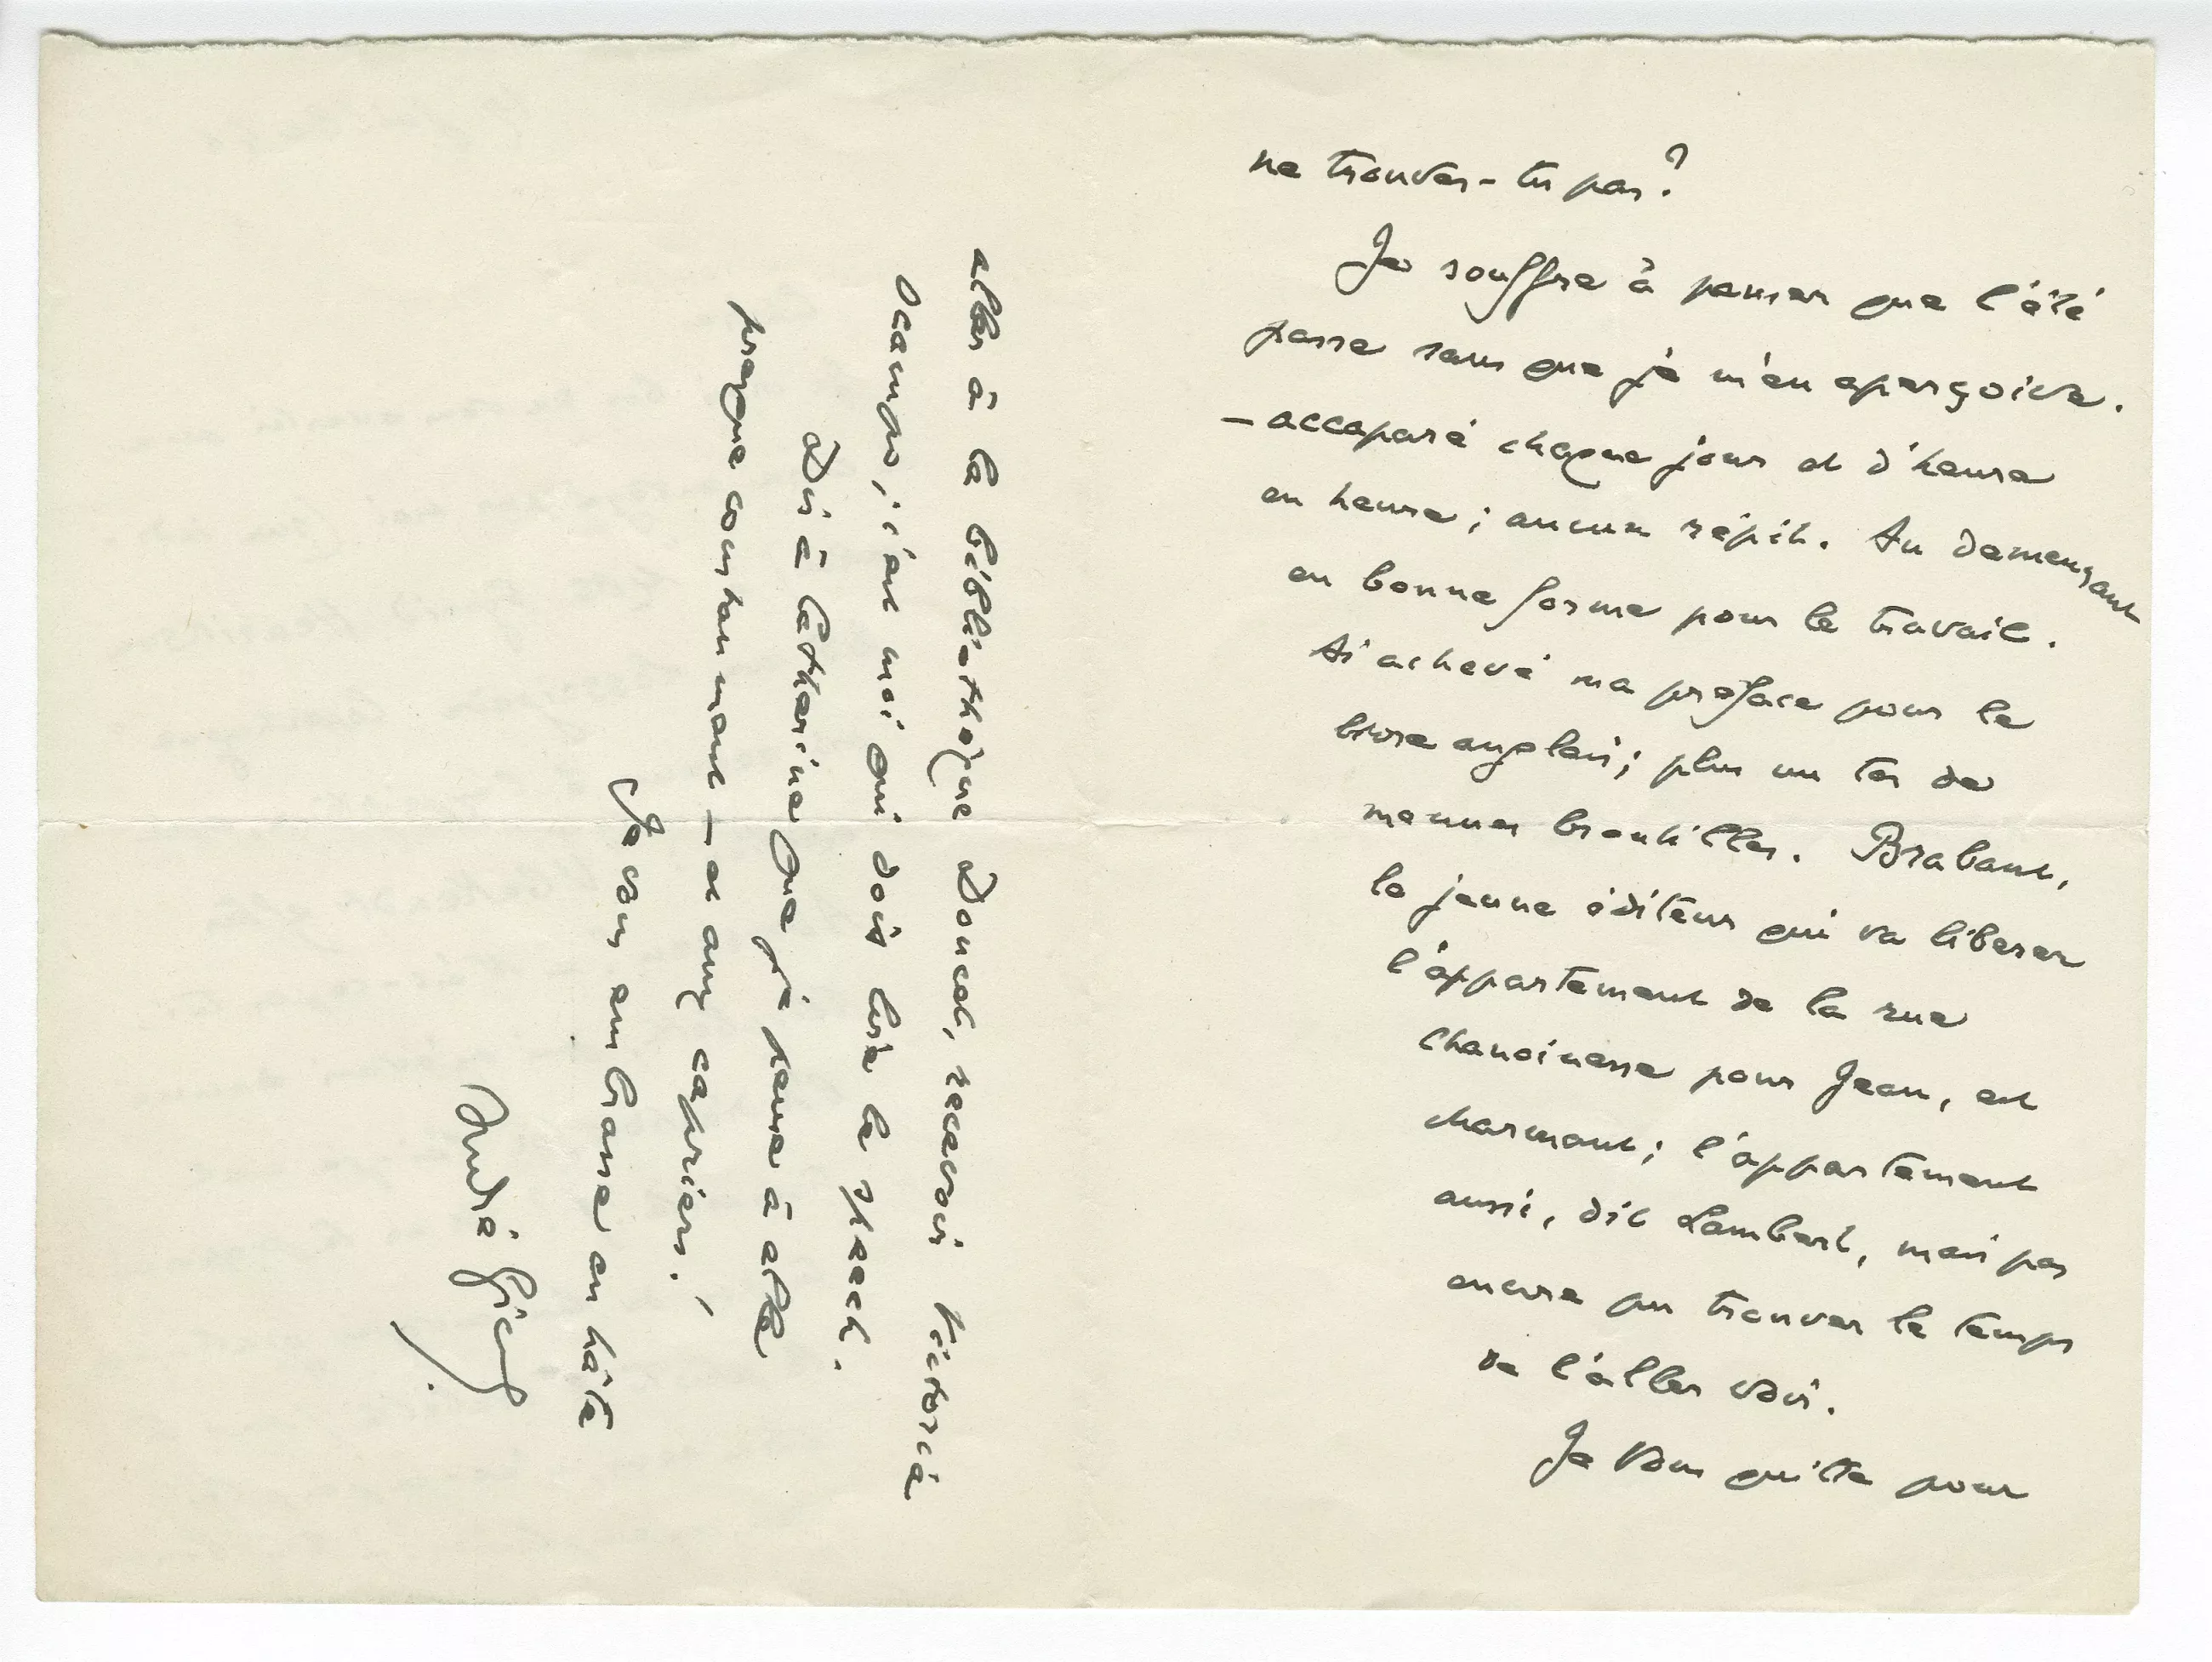 ne trouves-tu pas?
Je souffre à penser que l'été
passe sans que je m'en aperçoive.
— accaparé chaque jour et d'heure
en heure; aucun répit. Au demeurant
en bonne forme pour le travail.
Ai achevé ma préface pour le
livre anglais; plus un tas de
menues broutilles. Brabant,
le jeune éditeur qui va libérer
l'appartement de la rue
Chanoinesse pour Jean, est
charmant; l'appartement
aussi, dit Lambert, mais pas
encore pu trouver le temps
de l'aller voir.
Je vous quitte pour
aller à la bibliothèque Doucet, recevoir Victoria
Ocampo; c'est moi qui dois lire le speech.
Dis à Catherine que je pense à elle
presque constamment — et aux capriers!
Je vous embrasse en hâte
André Gide.